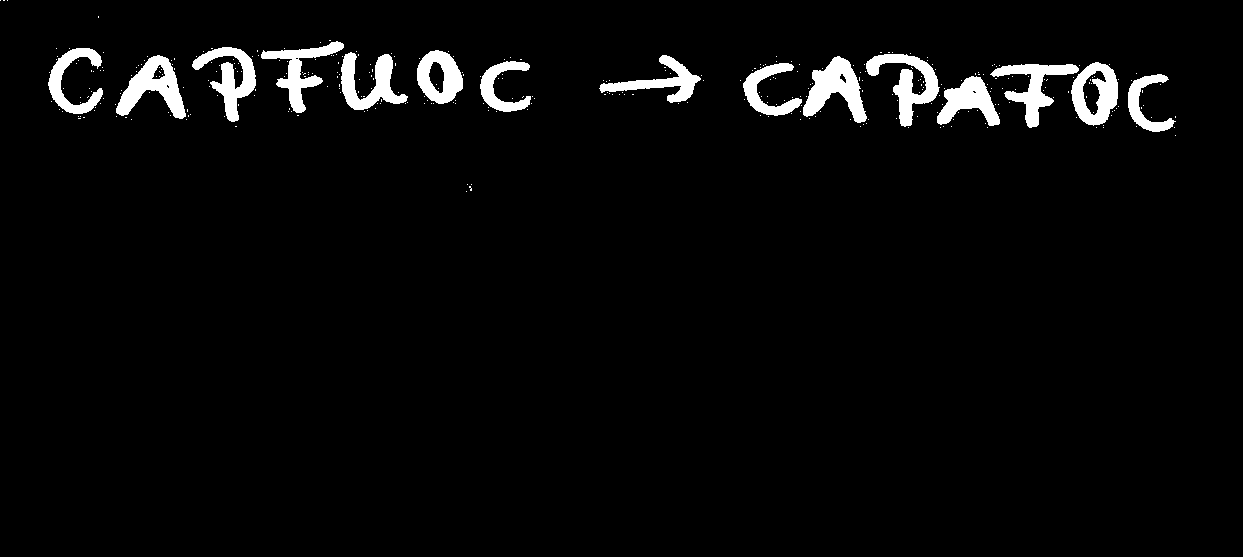 CAPFUOC → CAPAFOC